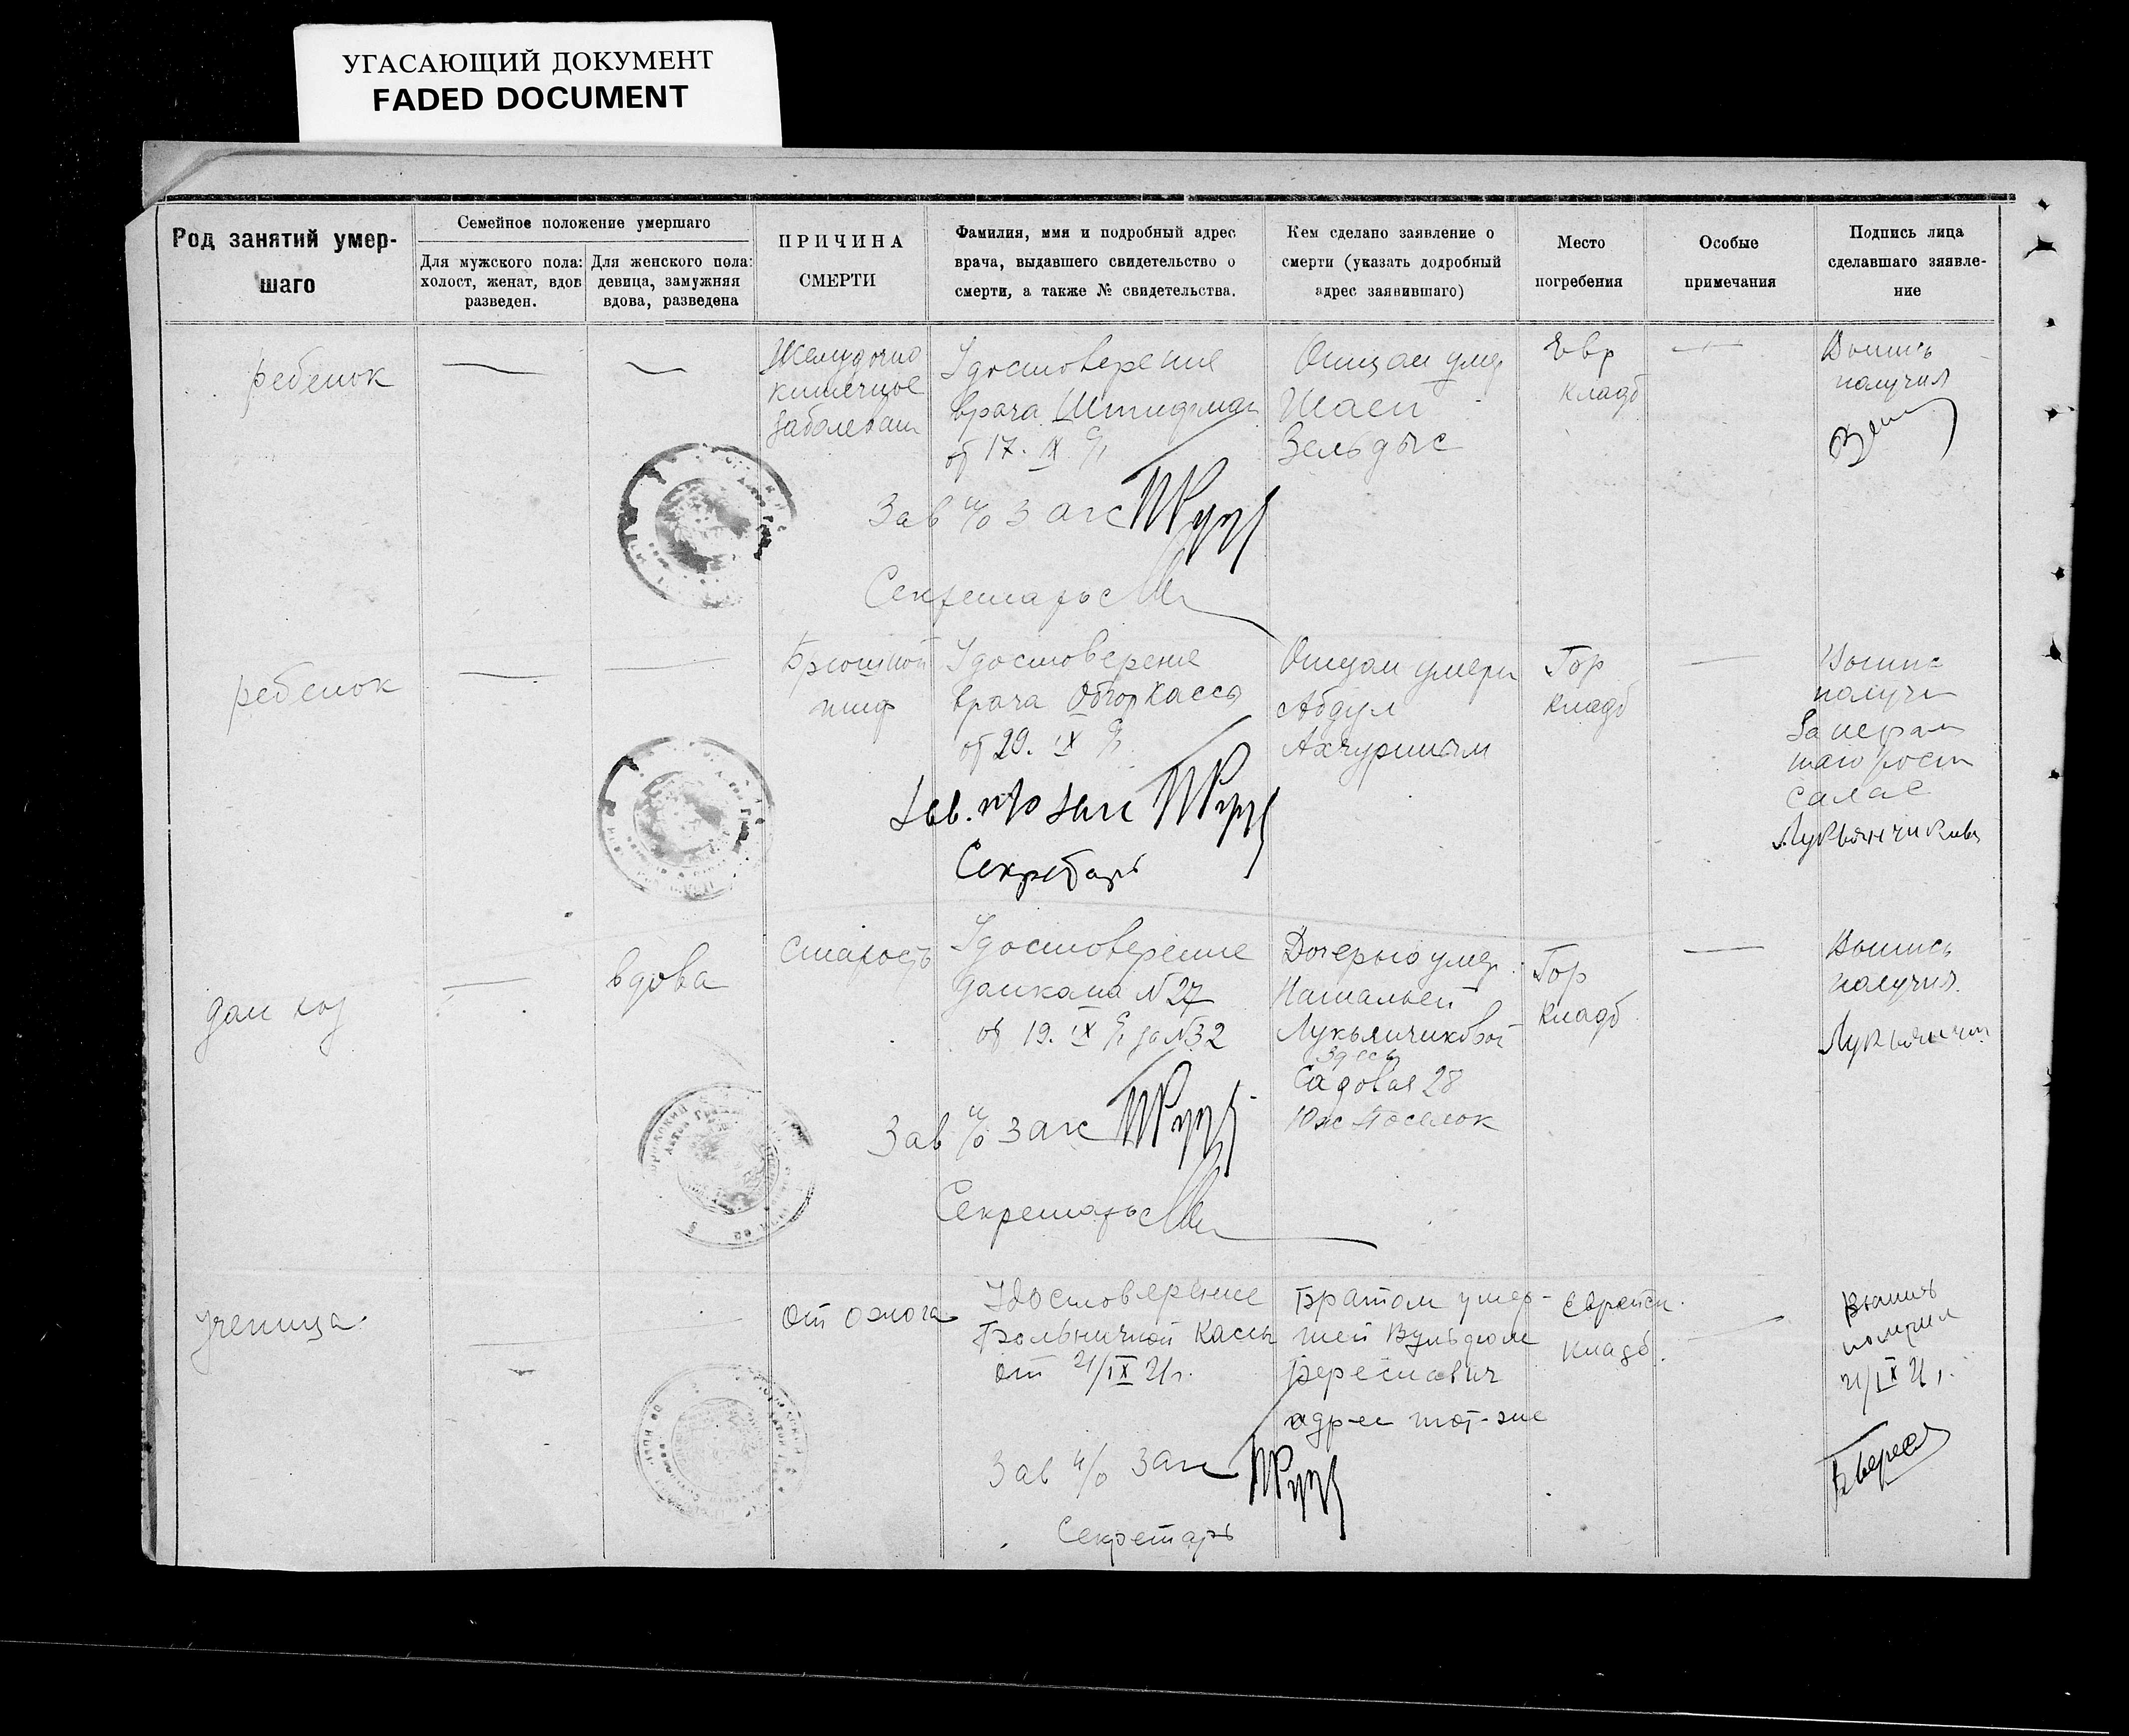 УГАСАЮЩИЙ ДОКУМЕНТ
FADED DOCUMENT
Род занятий умер-
шаго
Семейное положение умершаго
Для мужского пола:
холост, женат, вдов
разведен.
Для женского пола:
девица, замужняя
вдова, разведена
ПРИЧИНА
СМЕРТИ
Фамилия, имя и подробный адрес
врача, выдавшего свидетельство о
смерти, а также № свидетельства.
Кем сделано заявление о
смерти (указать додробный
адрес заявившаго)
Место
погребения
Особые
примечания
Подпись лица
сделавшаго заявле-
ние
ребенок
Желудочно
кишечное
заболеван
Удостоверение
врача
от 17. IX
Отцом умер
Шаей
Зельдыс
Евр
кладб
Выпись
получил
Зав п/о Загс
Секретарь
ребенок
Брюшной
тиф
Удостоверение
врача Обгоркассы
от 20. IX
Отцом умерш
Абдул
Ахчуриным
Гор
кладб
Выпис
получ
За неграм
расп
Лукьянчикова
Зав. п/о Загс
Секретарь
дом хоз
вдова
старость
Удостоверение
домкома №27
от 19. IX за №32
Дочерью умер
Натальей
Лукьянчиковой
здесь
Садовая 28
Юж Поселок
Гор
кладб
Выпись
получил
Зав п/о Загс
Секретарь
ученица
от ожога
Удостоверение
Больничной Кассы
от 21/IX 21г.
Братом умер-
шей Вульфом
Бересневич
адрес тот-же
Еврейск.
кладб.
Выпись
получил
21/IX 21г.
Зав п/о Загс
Секретарь